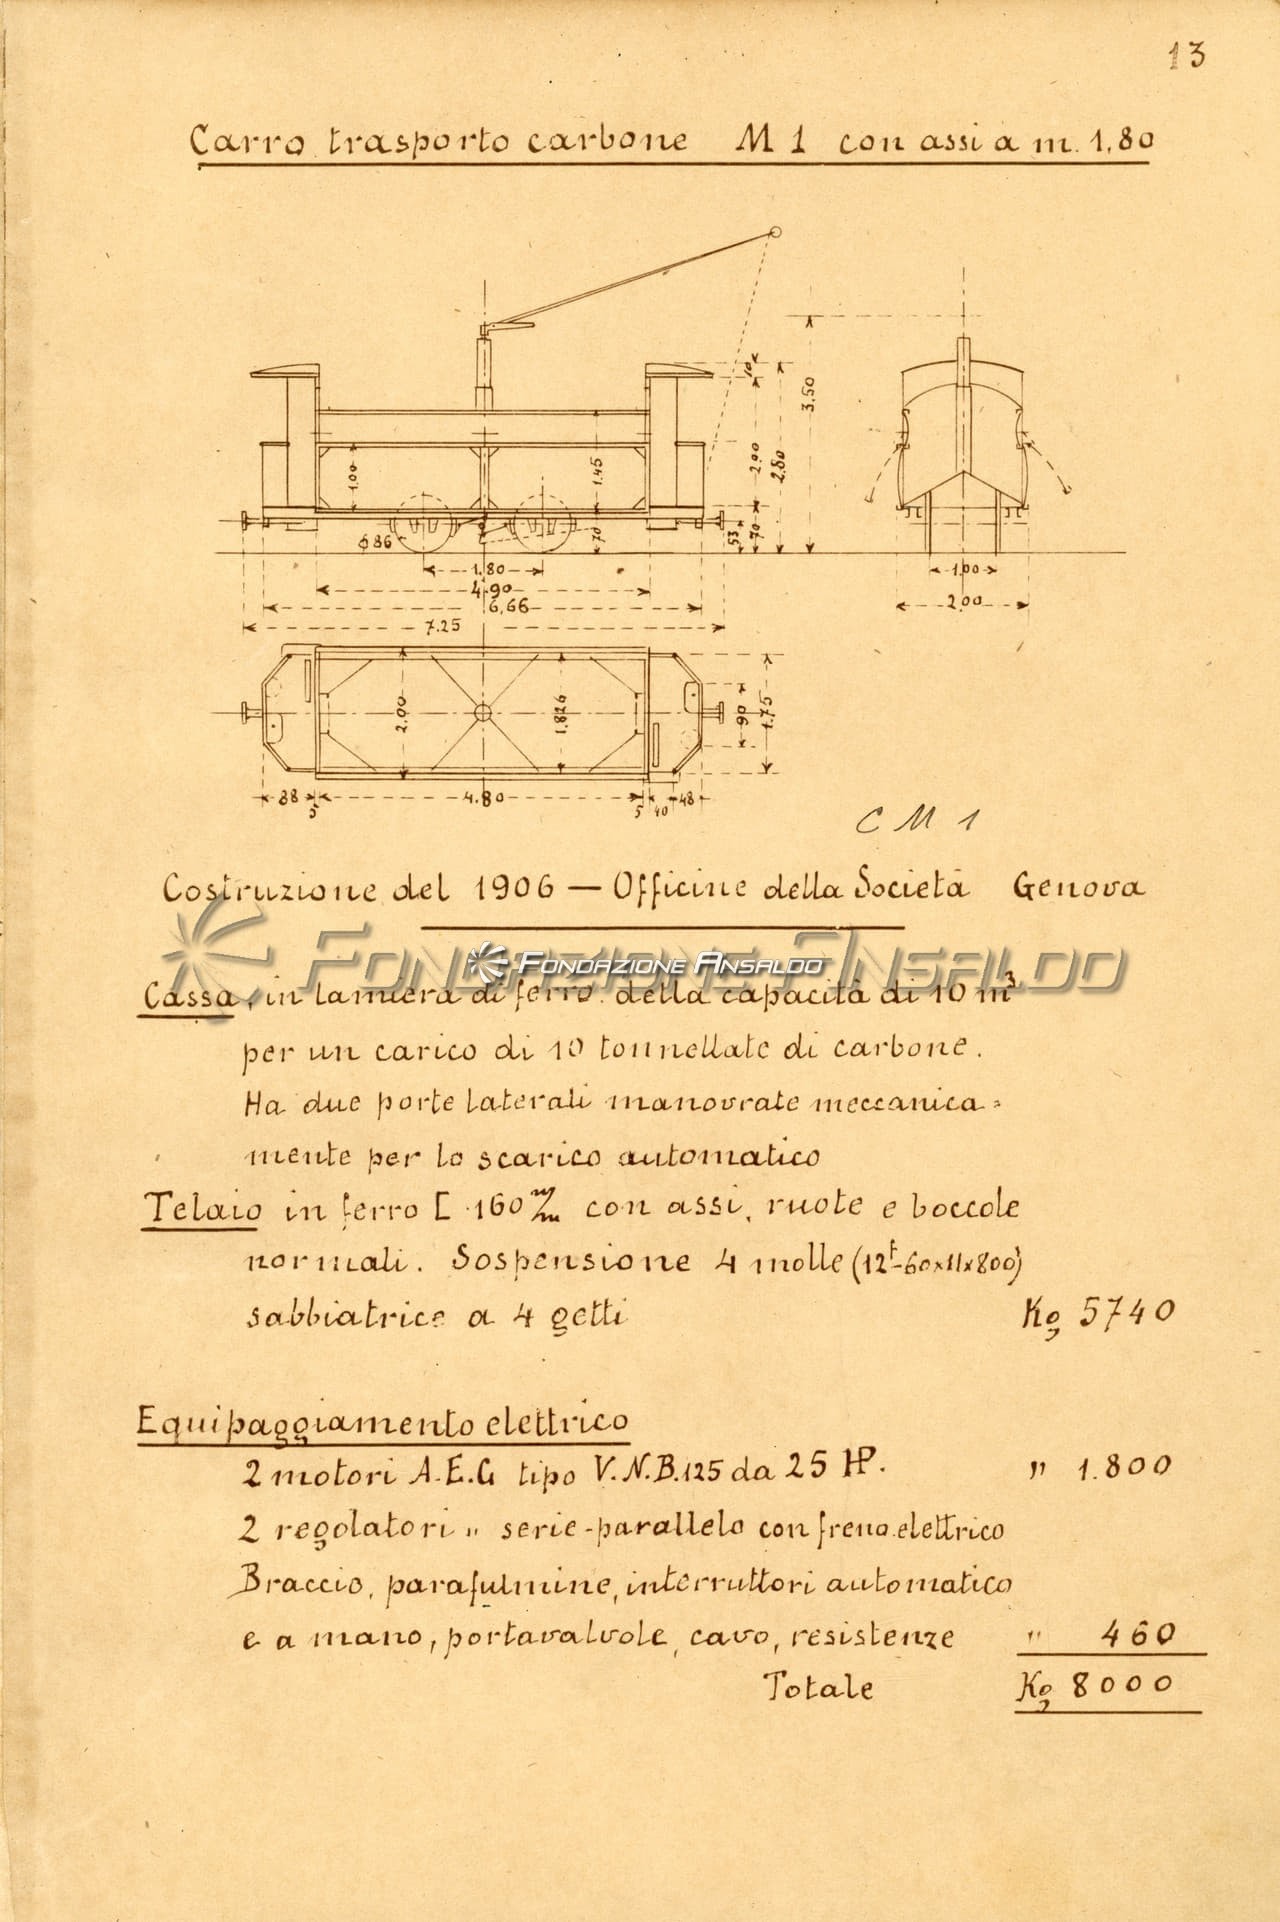 13
Carro trasporto carbone M 1 con assi a m. 1,80
10
3,50
2.00
2.80
1.00
1.45
ϕ 86
70
53
70
1.80
4.90
6,66
7.25
1.00
2.00
2.00
1.826
90
1.75
88
5
4.80
5
40
48
C M 1
Costruzione del 1906 — Officine della Società Genova
FONDAZIONE ANSALDO
FONDAZIONE ANSALDO
Cassa, in lamiera di ferro della capacità di 10 m³
per un carico di 10 tonnellate di carbone.
Ha due porte laterali manovrate meccanica=
mente per lo scarico automatico
Telaio in ferro [ 160 m/m con assi, ruote e boccole
normali. Sospensione 4 molle (12f-60x11x800)
sabbiatrice a 4 getti Kg 5740
Equipaggiamento elettrico
2 motori A.E.G tipo V.N.B.125 da 25 HP. " 1.800
2 regolatori " serie-parallelo con freno elettrico
Braccio, parafulmine, interruttori automatico
e a mano, portavalvole, cavo, resistenze " 460
Totale Kg 8000